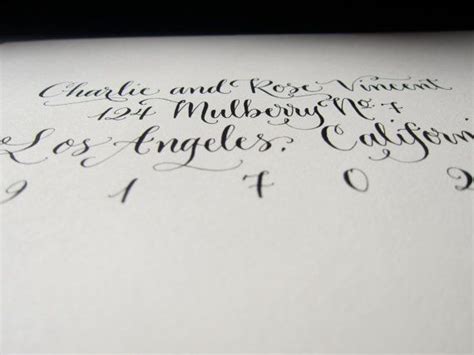 Charlie and Rose Vincent
124 Mulberry No. 7
Los Angeles, Californi
9 1 7 0 2